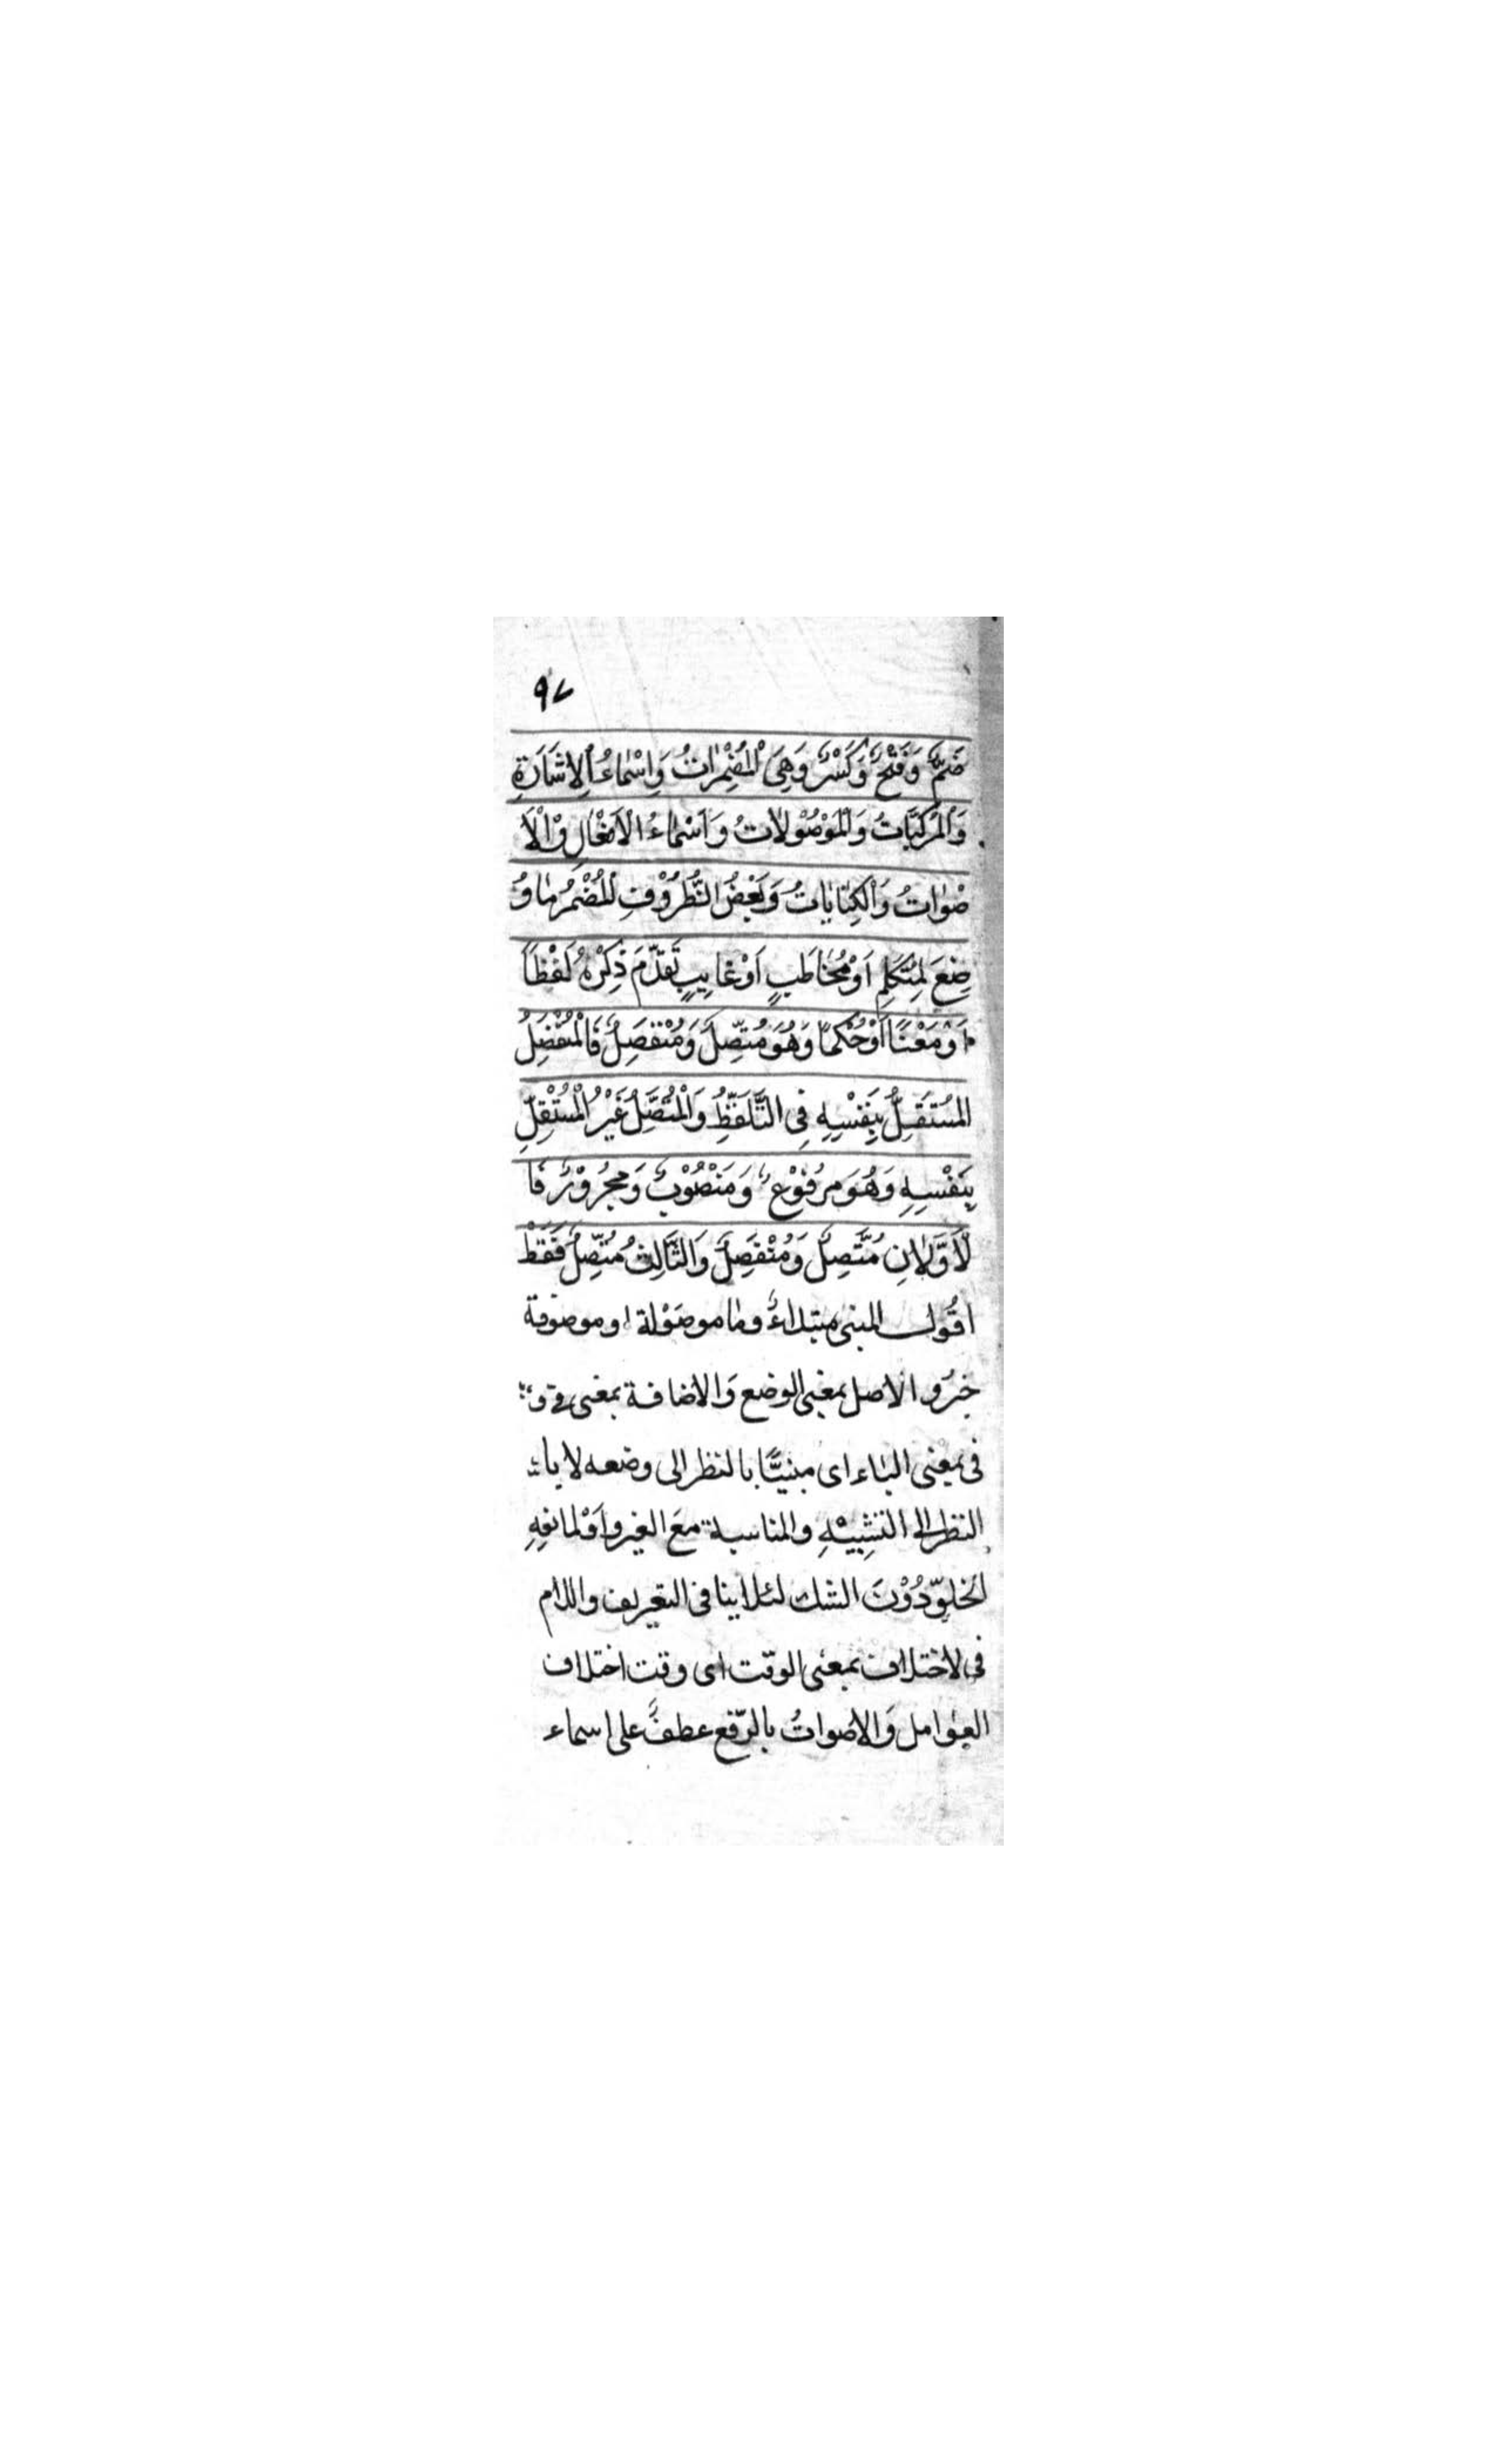 ٩٧
ضَمٌّ وَفَتْحٌ وَكَسْرٌ وَهِيَ الْمُضْمَرَاتُ وَاِسْمَاءُ الْاِشَارَةِ
وَالْمُرَكَّبَاتُ وَالْمَوْصُوْلَاتُ وَاَسْمَاءُ الْاَفْعَالِ وَالْاَ
صْوَاتُ وَالْكِنَايَاتُ وَبَعْضُ الظُّرُوْفِ الْمُضْمَرُ مَا وُ
ضِعَ لِمُتَكَلِّمٍ اَوْ مُخَاطَبٍ اَوْ غَايِبٍ تَقَدَّمَ ذِكْرُهُ لَفْظًا
اَوْ مَعْنًا اَوْ حُكْمًا وَهُوَ مُتَّصِلٌ وَمُنْفَصِلٌ فَالْمُنْفَصِلُ
المُسْتَقِلُّ بِنَفْسِهِ فِى التَّلَفُّظِ وَالْمُتَّصِلُ غَيْرُ الْمُسْتَقِلِّ
بِنَفْسِهِ وَهُوَ مَرْفُوْعٌ وَمَنْصُوْبٌ وَمَجْرُوْرٌ فَا
لْاَوَّلَانِ مُتَّصِلٌ وَمُنْفَصِلٌ وَالثَّالِثُ مُتَّصِلٌ فَقَطْ
اقُول المبنى مبتداءٌ وما موصَوْلة او موصوفة
خبرُ والاصل بمعنى الوضع وَالاضافة بمعنى فى و
فى بمعنى الباء اى مبنيًّا بالنظر الى وضعه لا با
النظر الى التشبيْهِ والمناسبة مَعَ الغير واَوْ لمانعِهِ
الخلوّ دُوْنَ الشك لئلا ينافى التعريف واللام
فى لاختلاف بمعنى الوقت اى وقت اختلاف
العوامل وَالاصواتُ بالرّفع عطفً على اسماء